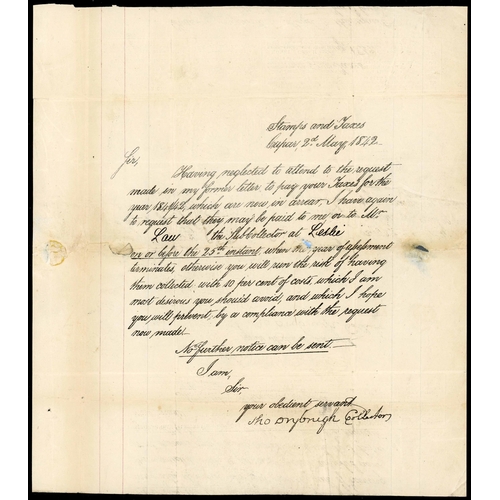 Stamps and Taxes
Cupar, 2d May, 1842.
Sir,
Having neglected to attend to the request
made in my former letter to pay your Taxes for the
year, 1841/42, which are now in arrear, I have again
to request that they may be paid to me or to Mr.
Law the Subcollector at Leslie
on or before the 25th instant, when the year of assessment
terminates, otherwise you will run the risk of having
them collected with 10 per cent of costs, which I am
most desirous you should avoid, and which I hope
you will prevent, by a compliance with the request
now made.
No further notice can be sent.
I am,
Sir,
your obedient servant
Tho Collector